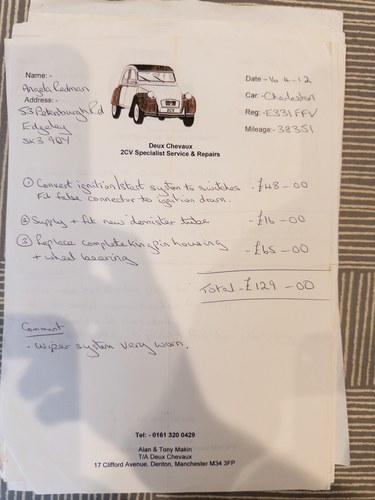 Name: -
Angela Redman
Address: -
53 Peterborough Rd
Edgeley
SK3 9QY
Date - 10-4-12
Car: - Charleston
Reg: - E331 FFV
Mileage: - 38351
Deux Chevaux
2CV Specialist Service & Repairs
① Convert ignition/start system to switches - £48-00
Fit false connector to ignition down.
② Supply + fit new demister tube - £16-00
③ Replace complete kingpin housing - £65-00
+ wheel bearing
Total - £129-00
Comment
- Wiper system very worn.
Tel: - 0161 320 0429
Alan & Tony Makin
T/A Deux Chevaux
17 Clifford Avenue, Denton, Manchester M34 3FP